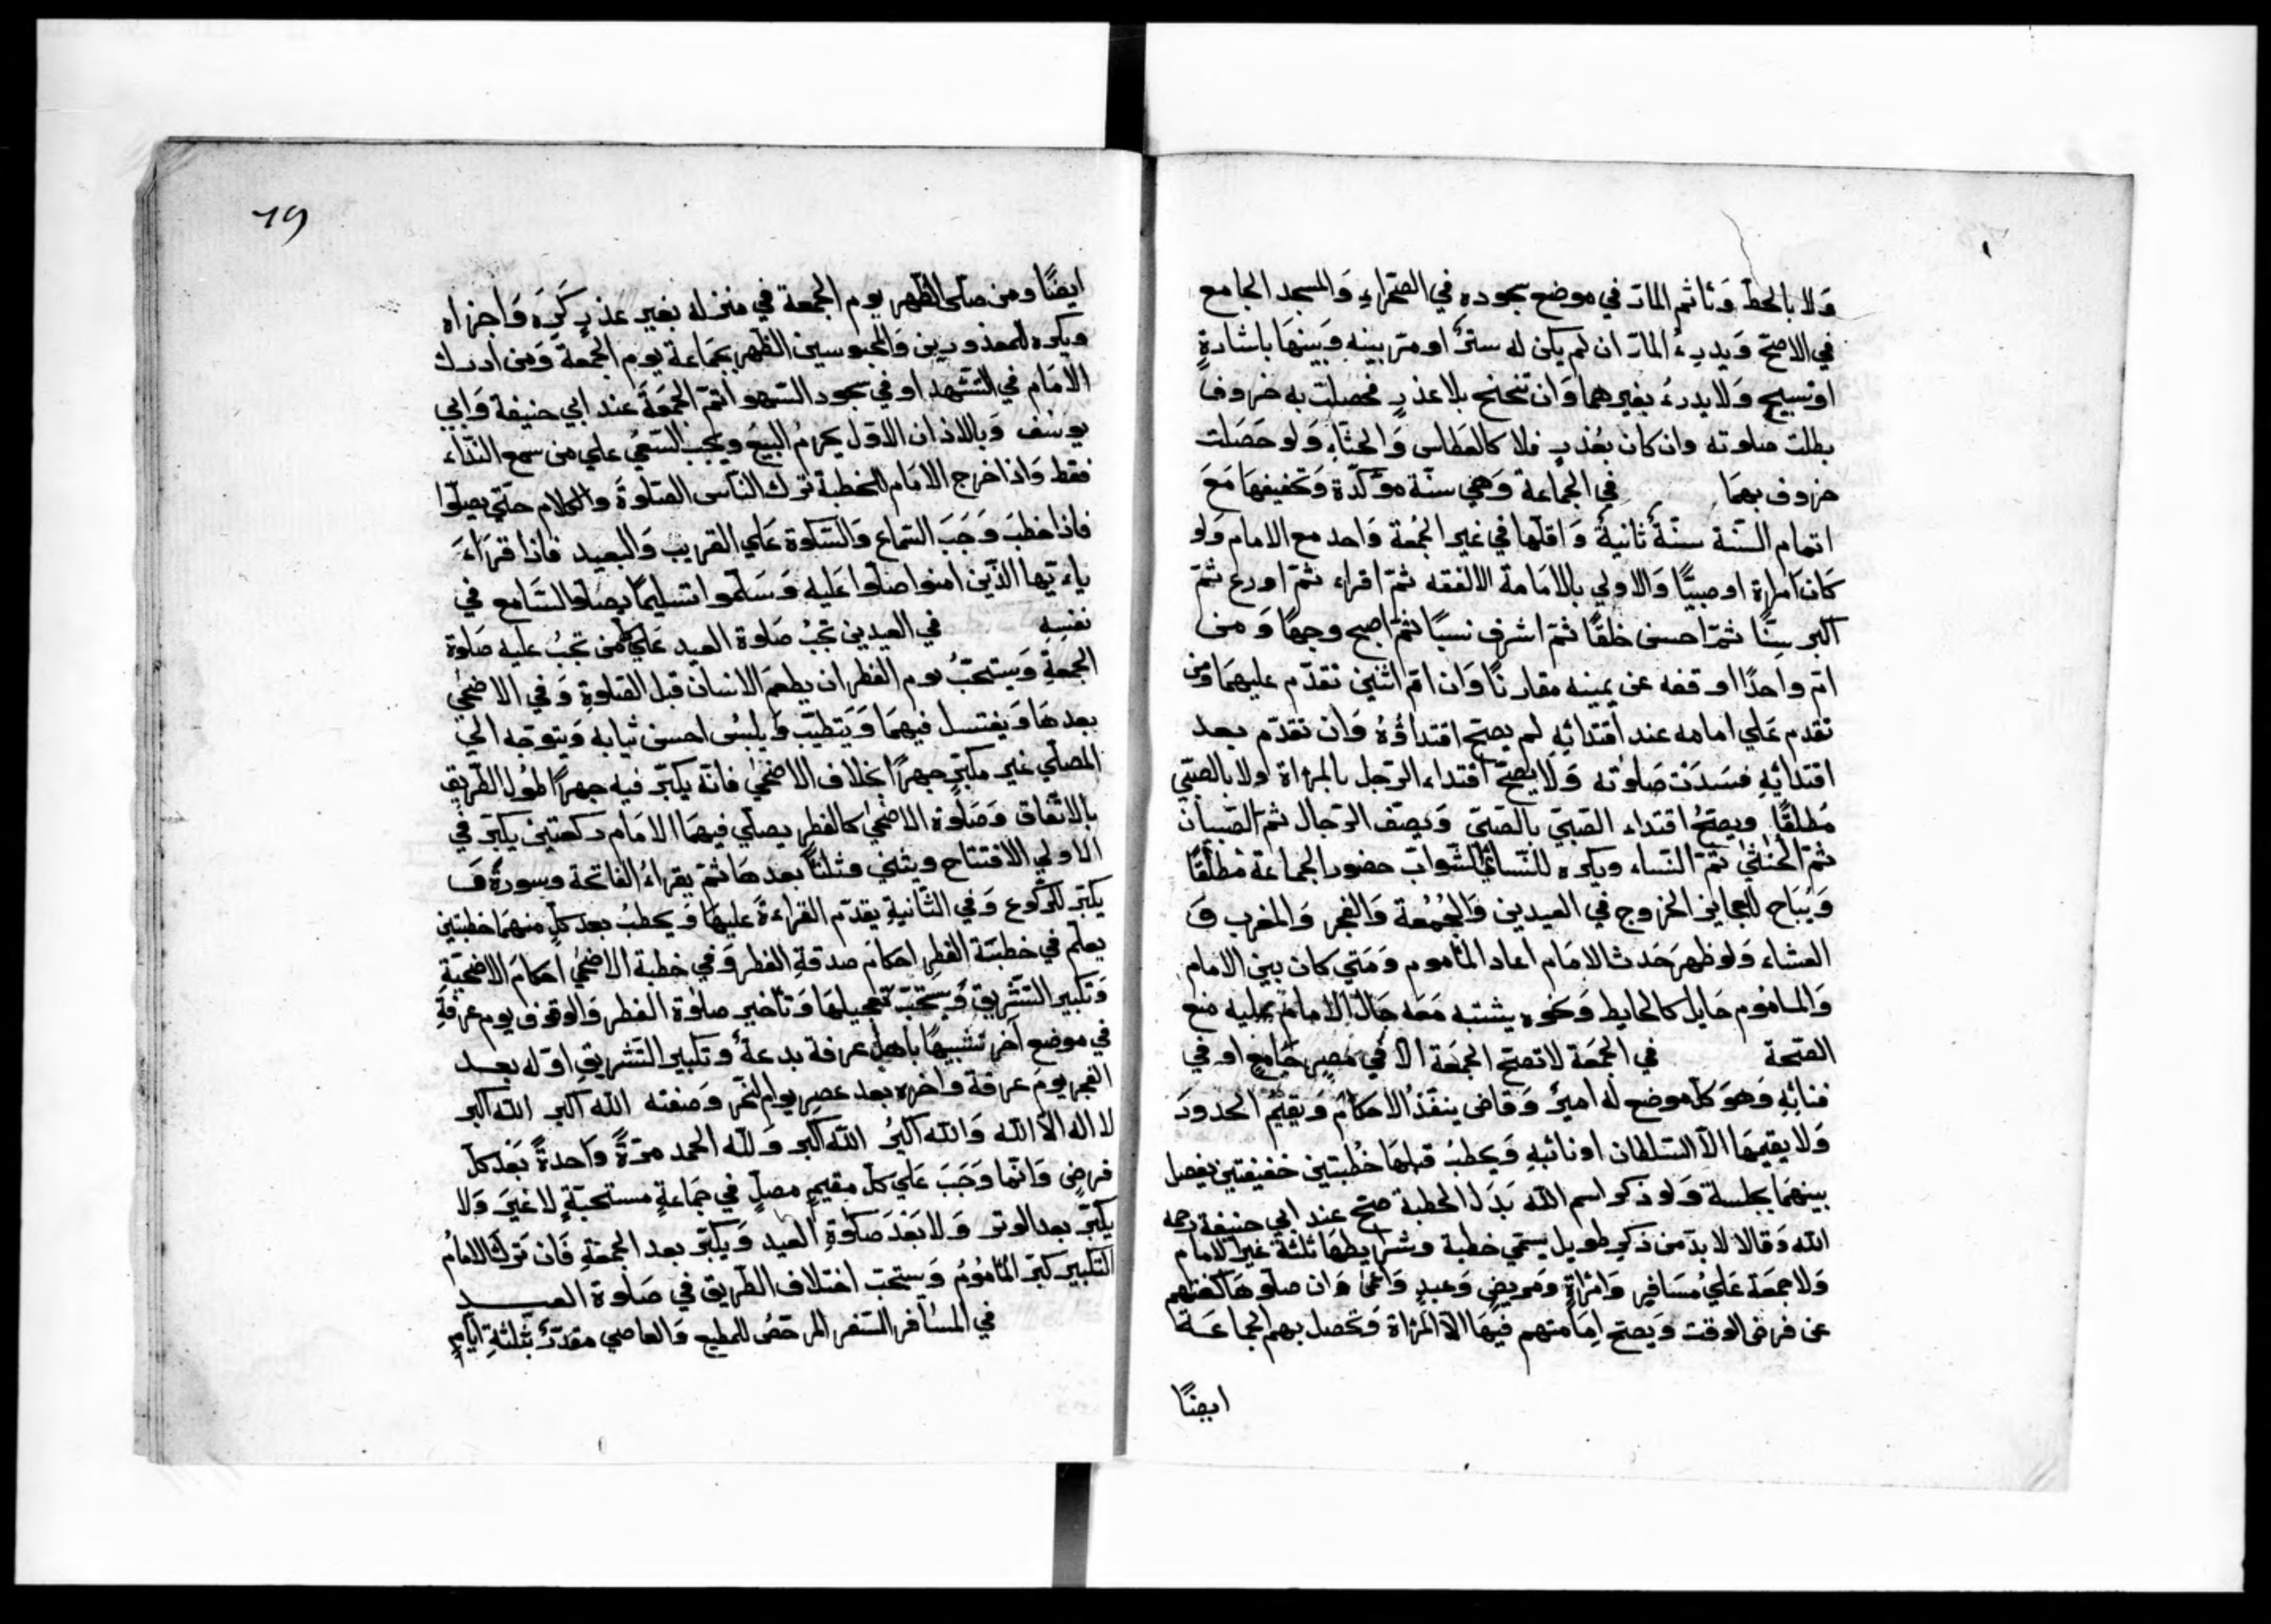 وَلا بالخطّ وَتاثم المارّ في موضع سجوده في الصّحراءِ وَالمسجد الجامع
في الاصحّ وَيدرءُ المارّ ان لم يكن له سترٌ او مرّ بينه وَبينهَا باشارةٍ
او تسبيحٍ وَلا يدرءُ بغيرهما وَان تنحنح بلا عذرٍ فحصلت به حروف
بطلت صلوته وان كان بعُذرٍ فلا كالعَطاس وَالجشَاءِ وَلو حَصَلت
حروف بهمَا في الجماعة وَهي سنّة مؤكّدة وَتخفيفهَا مَعَ
اتمام السّنة سنّةٌ ثانيةٌ وَاقلّها في غير الجُمعة وَاحد مع الامام وَلو
كَان امراة او صبيًّا وَالاولي بالامَامة الافقه ثمّ اقراء ثمّ اورع ثمّ
اكبر سِنًّا ثمّ احسن خلقًا ثمّ اشرف نسبًا ثمّ اصبح وجهًا وَمن
امّ واحدًا اوقفه عن يمينه مقارنًا وَان امّ اثنين تقدّم عليهمَا ومن
تقدم عَلي امامه عند اقتدائهِ لم يصحّ اقتداؤهُ وَان تقدّم بعد
اقتدائهِ فسَدَت صَلوته وَلا يصحّ اقتداء الرّجل بالمراة ولا بالصبّي
مُطلقًا ويصحُّ اقتداء الصّبيّ بالصّبيّ وَيصّف الرّجال ثمّ الصّبيان
ثمّ الخنثيٰ ثمّ النّساء ويكره للنّساء الشّوابّ حضور الجماعة مُطلقًا
وَيُبَاح للعجايز الخروج في العيدين وَالجُمُعة وَالفجر وَالمغرب وَ
العشاء وَلو ظهر حَدث الامَام اعاد المأموم وَمَتي كان بين الامام
وَالماموم حَايل كالحايط وَنحوه يشتبه مَعَه حَال الامام عليه منع
الصّحة في الجمُعَة لا تصحّ الجمعَة الّا في مصرٍ جَامِعٍ او في
فنائِهِ وَهوَ كلّ موضع لهُ اميرٌ وَقاض ينفّذُ الاحكامَ وَيقيمُ الحدودَ
وَلا يقيمهَا الّا السّلطان او نائبهِ وَيخطبُ قبلهَا خُطبتين خفيفتين يفصل
بينهمَا بجلسة وَلو ذكر اسم اللّه بَدَل الخطبة صحّ عند ابي حنيفة رحمه
اللّه وَقالا لا بدّ من ذكرٍ طويل يسمّي خطبة وشرايطهَا ثلثة غير الامام
وَلا جمعَة عَليٰ مُسَافرٍ وَامْراةٍ وَمريضٍ وَعبدٍ وَاعْمىٰ وَان صلّوهَا كفتهم
عن فرض الوقت وَيصحّ اِمَامتهم فيهَا الّا المراة وَتحصل بهم الجماعَة
ايضًا
19
ايضًا ومن صلّى الظّهر يوم الجمعة في منزله بغير عذرٍ كَرِهَ وَاجزاه
ويكره للمعذورين وَالمحبوسين الظّهر بجمَاعة يوم الجمعة وَمن ادرك
الامَام في التّشهد او في سجود السّهو اتمّ الجمَعةَ عند ابي حنيفة وَابي
يوسُف وَبالاذان الاوّل يحرمُ البيعُ ويجب السّعيُ علي من سمع النّداء
فقط وَاذا خرج الامَام للخطبة ترك النّاس الصّلوةَ والكلام حتّي يصلّوا
فاذا خطبَ وَجَبَ السّماع وَالسّكوة عَلي القريب وَالبعيد فاذا قرَاءَ
ياءيّها الّذين امنوا صلّوا عَليه وَسَلّموا تسليمًا يصلّ السّامع في
نفسِه في العيدين تجبُ صَلوة العيد عَلي من تجبُ عليه صَلوة
الجمعةِ وَيستحبّ يوم الفطر ان يطعمَ الانسان قبل الصّلوةِ وَفي الاضحٰي
بعدهَا وَيغتسل فيهمَا وَيَتطيّب وَيلبسُ احسن ثيابه وَيتوجّه الي
المصلّي غير مكبّرٍ جهرًا بخلاف الاضحٰي فانّه يكبّر فيه جهرًا طُول الطّريق
بالاتّفاق وَصَلوة الاضحٰي كالفطرِ يصلّي فيهمَا الامَام ركعتين يكبّر في
الاولي الافتتاح ويثني وثلثًا بعدهَا ثمّ يقراءُ الفاتحة وسورةً وَ
يكبّر للرّكوع وَفي الثّانيةِ يقدّم القراءةَ عليهَا وَيخطبُ بعد كلّ منهمَا خطبتين
يعلّم في خطبَة الفطرِ احكامَ صدقةِ الفطر وَفي خطبة الاضحٰي احكامَ الاضحيّةِ
وَتكبير التّشريق وَيستحبّ تعجيلهَا وَتأخير صلوة الفطر وَالوقوف يوم عرفةِ
في موضع آخر تشبيهًا باهل عرفة بدعةٌ وتكبير التّشريق اوّله بعد
الفجر يومَ عرفة وَاخره بعد عصر يوم النّحر وَصفته اللّه اكبر اللّه اكبر
لا اله الّا اللّه وَاللّه اكبرُ اللّه اكبر وَللّه الحمد مرّةً وَاحدةً بَعْد كلّ
فرض وَانّما وَجَبَ عَلي كلّ مقيمٍ مصلٍّ في جَماعةٍ مستحبّةٍ لا غيرَ وَلا
يكبّر بعد الوتر وَلا بَعْدَ صَلوةِ العيد وَيكبّر بعد الجمعَةِ فَان تَركَ الامامُ
التّكبير كبّر المأمُومُ وَيستحب اختلاف الطّريق في صَلوة العيد
في المسُافر السّفر المرخّصُ للمطيع وَالعاصي مقدّرٌ بثلثةِ ايّامٍ